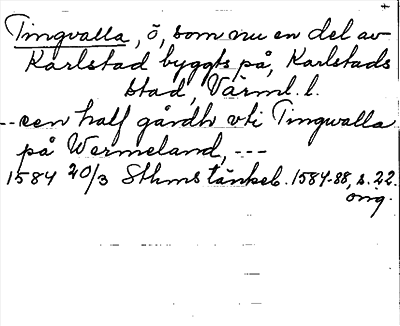 Tingvalla, ö, som nu en del av
Karlstad byggts på, Karlstads
stad, Värml. l.
--een half gårdh vti Tingwalla
på Wermeland, ---
1584 20/3 Sthms tänkeb. 1584-88, s. 22.
orig.